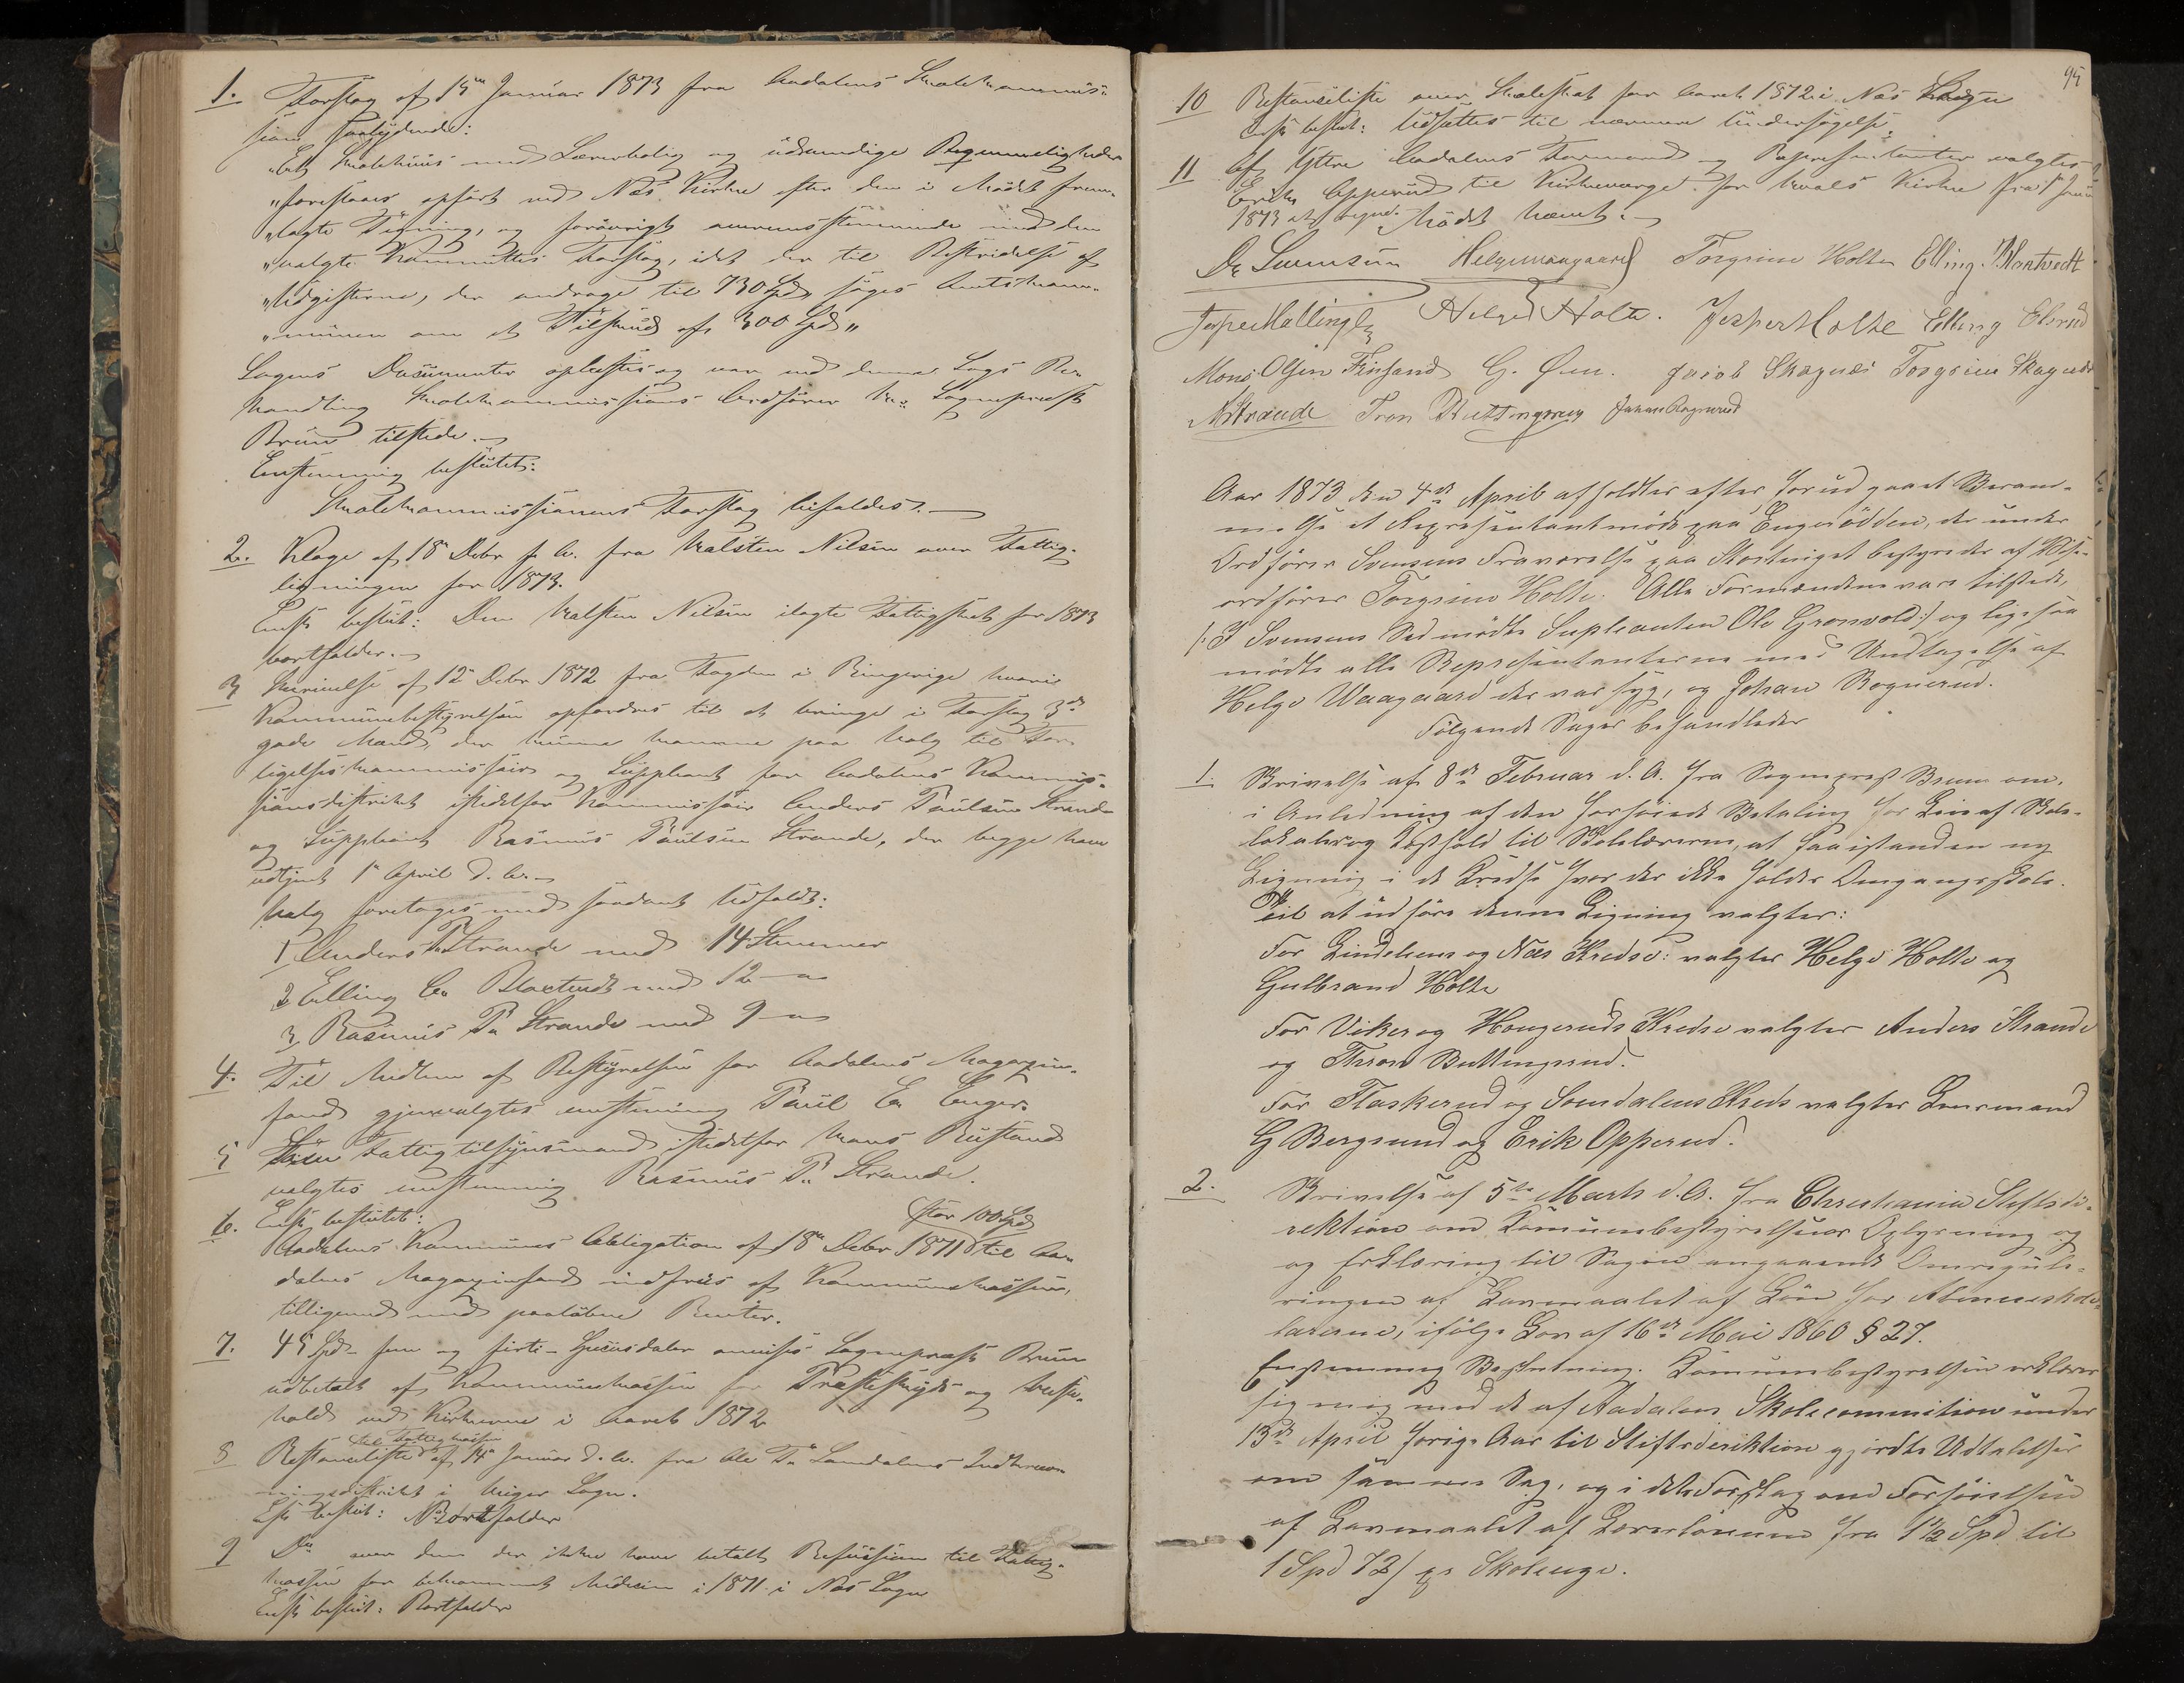 1. Forslag af 15de Januar 1873 fra Aadalens Skolekommis-
sion saalydende:
"Et Skolehuus med Lærerbolig og udvendige Bequemmeligheder
"foreslaaes opført ved Næs Kirke efter den i Mødet frem-
"lagte Tegning, og forøvrigt overensstemmende med den
"valgte Kommittes Forslag, idet der til Bestridelse af
"Udgifterne, der andrage til 730 Spd, søges Amtskom-
"munen om et Tilskud af 300 Spd"
Sagens Documenter oplæstes og var ved denne Sags Be-
handling Skolekommissionens Ordfører Hr. Sogneprest
Bruun tilstede.
Enstemmig besluttet:
Skolekommissionens Forslag bifaldes.
2. Klage af 18 Debr f. A. fra Halsten Nilsen over Fattig-
ligningen for 1873.
Enst. beslut: Den Halsten Nilsen ilagte Fattigskat for 1873
bortfalder.
3 Skrivelse af 12te Debr 1872 fra Fogden i Ringerige hvori
Kommunebestyrelsen opfordres til at bringe i Forslag 3de
gode Mænd, der kunne komme paa Valg til For-
ligelseskommissair og Suppleant for Aadalens Kommis-
sionsdistrikt istedetfor Kommissair Anders Paulsen Strande
og Suppleant Rasmus Paulsen Strande, der begge have
udtjent 1ste April d. A.
Valg foretoges med saadant Udfald:
1 Anders P. Strande med 14 Stemmer
2 Elling A. Blactvedt med 12 —
3, Rasmus P. Strande med 9 —
4. Til Medlem af Bestyrelsen for Aadalens Magazin-
fond gjenvalgtes enstemmig Paul E. Enger.
5 Som Fattigtilsynsmand istedetfor Hans Rustand
valgtes enstemmig Rasmus P. Strande.
6. Enst. besluttet: stor 100 Spd
Aadalens Kommunes Obligation af 18de Debr 1871 til Aa-
dalens Magazinfond indfries af Kommunekassen,
tilligemed med paaløbne Renter.
7. 45 Spd - fem og firti - Speciesdaler anvises Sogneprest Bruun
udbetalt af Kommunekassen for Præsteskyds og
hold ved Kirkerne i Aaret 1872
til Fattigkassen
8 Restanceliste af 14de Januar d. A. fra Ole T. Somdalens Indkræv-
ningsdistrikt i Viger Sogn.
Est. beslut: Bortfalder
9 Do over dem der ikke have betalt Refusion til Fattig-
kassen for bekommet Medicin i 1871 i Næs Sogn
Enst. beslut: Bortfalder
95
10 Restanceliste over Skoleskat for Aaret 1872 i Næs Sogn
Enst. beslut: Udsættes til nærmere Undersøgelse.
11 Af Ytre Aadalens Formænd og Repræsentanter valgtes
Erik Opperud til Kirkeværge for Hvals Kirke fra 1ste Janu
1873 at regne. Mødet hævet.
Svensen Helge Waagaard Torgrim Holte Elling Blaktvedt
Jesper Hallingby Helge Holte. Jesper Holte Elling Elsrud
Mons Olsen Finsand G. Øen. Jacob Skagnæs Torgrim Skagnæs
A Strande Tron Buttingsrud Johan Rognerud
Aar 1873 den 4de April afholdtes efter forudgaaet Beram-
melse et Repræsentantmøde paa Engerodden, der under
Ordfører Svensens Fraværelse paa Storthinget bestyredes af Vise-
ordfører Torgrim Holte. Alle Formændene vare tilstede,
/: I Svensens Sted mødte Supleanten Ole Grønvold :/ og ligesaa
mødte alle Repræsentanterne med Undtagelse af
Helge Waagaard der var syg, og Johan Rognerud.
Følgende Sager behandledes
1. Skrivelse af 8de Februar d. A. fra Sogneprest Bruun om,
i Anledning af den forhøiede Betaling for Leie af Skole-
lokaler og Kosthold til Skolelærerne, at faa istanden ny
Ligning i de Kredse hvor der ikke holdes Omgangsskole.
Til at udføre denne Ligning valgtes:
For Lindelien og Næs Kredse: valgtes Helge Holte og
Gulbrand Holte
For Viker og Hougeruds Kredse valgtes Anders Strande
og Thron Buttingsrud.
For Flaskerud og Somdalens Kreds valgtes Lensmand
G Bergsund og Erik Opperud.
2. Skrivelse af 5te Marts d. A. fra Christiania Stiftsdi-
rektion om Komunebestyrelsens Oplysning og
og Erklæring til Sagen angaaende Omregule-
ringen af Lavmaalet af Løn for Almueskole-
lærerne, ifølge Lov af 16de Mai 1860 § 27.
Enstemmig Beslutning. Komunebestyrelsen erklærer
sig enig med de af Aadalens Skolecommition under
13de April forige Aar til Stiftsdirektion gjordte Udtalelser
om samme Sag, og i dets Forslag om Forhøielsen
af Lavmaalet af Lærerlønnen fra 1 1/2 Spd til
1 Spd 72 / pr Skoleuge.